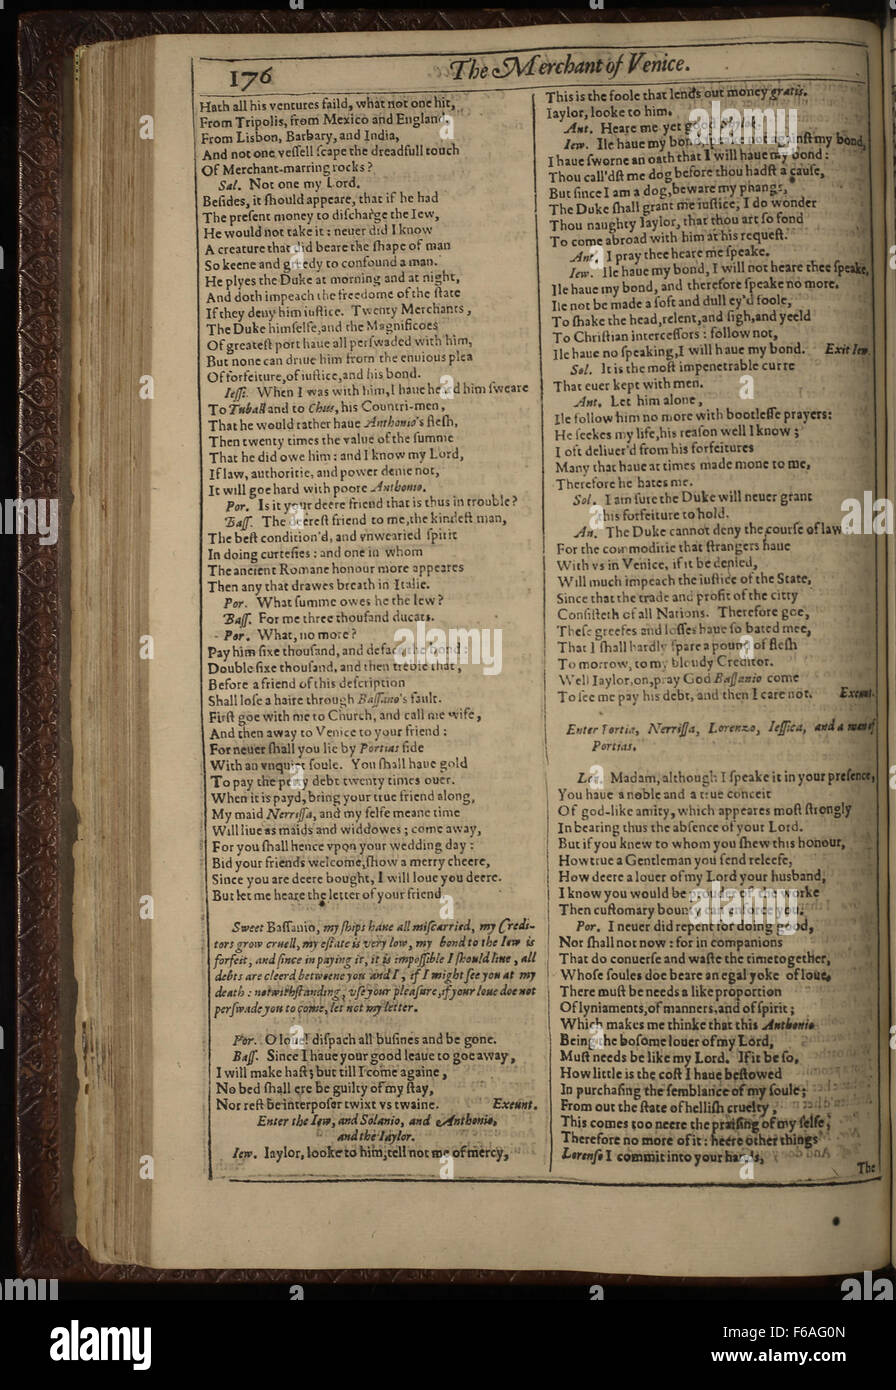 176
The Merchant of Venice.
Hath all his ventures faild, what not one hit,
From Tripolis, from Mexico and England,
From Lisbon, Barbary, and India,
And not one veſſell ſcape the dreadfull touch
Of Merchant-marring rocks?
Sal. Not one my Lord.
Beſides, it ſhould appeare, that if he had
The preſent money to diſcharge the Iew,
He would not take it: neuer did I know
A creature that did beare the ſhape of man
So keene and greedy to confound a man.
He plyes the Duke at morning and at night,
And doth impeach the freedome of the ſtate
If they deny him iuſtice. Twenty Merchants,
The Duke himſelfe, and the Magnificoes
Of greateſt port haue all perſwaded with him,
But none can driue him from the enuious plea
Of forfeiture, of iuſtice, and his bond.
Ieſſi. When I was with him, I haue heard him ſweare
To Tuball and to Chus, his Countri-men,
That he would rather haue Anthonio's fleſh,
Then twenty times the value of the ſumme
That he did owe him: and I know my Lord,
If law, authoritie, and power denie not,
It will goe hard with poore Anthonio.
Por. Is it your deere friend that is thus in trouble?
Baſſ. The deereſt friend to me, the kindeſt man,
The beſt condition'd, and vnwearied ſpirit
In doing curteſies: and one in whom
The ancient Romane honour more appeares
Then any that drawes breath in Italie.
Por. What ſumme owes he the Iew?
Baſſ. For me three thouſand ducats.
Por. What, no more?
Pay him ſixe thouſand, and deface the bond:
Double ſixe thouſand, and then treble that,
Before a friend of this deſcription
Shall loſe a haire through Baſſano's fault.
Firſt goe with me to Church, and call me wife,
And then away to Venice to your friend:
For neuer ſhall you lie by Portias ſide
With an vnquiet ſoule. You ſhall haue gold
To pay the petty debt twenty times ouer.
When it is payd, bring your true friend along,
My maid Nerriſſa, and my ſelfe meane time
Will liue as maids and widdowes; come away,
For you ſhall hence vpon your wedding day:
Bid your friends welcome, ſhow a merry cheere,
Since you are deere bought, I will loue you deere.
But let me heare the letter of your friend.
Sweet Baſſanio, my ſhips haue all miſcarried, my Credi-
tors grow cruell, my eſtate is very low, my bond to the Iew is
forfeit, and ſince in paying it, it is impoſſible I ſhould liue, all
debts are cleerd betweene you and I, if I might ſee you at my
death: notwithſtanding, vſe your pleaſure, if your loue doe not
perſwade you to come, let not my letter.
Por. O loue! diſpach all buſines and be gone.
Baſſ. Since I haue your good leaue to goe away,
I will make haſt; but till I come againe,
No bed ſhall ere be guilty of my ſtay,
Nor reſt be interpoſer twixt vs twaine. Exeunt.
Enter the Iew, and Solanio, and Anthonio,
and the Iaylor.
Iew. Iaylor, looke to him, tell not me of mercy,
This is the foole that lends out money gratis.
Iaylor, looke to him.
Ant. Heare me yet good Shylok.
Iew. Ile haue my bond, ſpeake not againſt my bond,
I haue ſworne an oath that I will haue my bond:
Thou call'dſt me dog before thou hadſt a cauſe,
But ſince I am a dog, beware my phangs,
The Duke ſhall grant me iuſtice, I do wonder
Thou naughty Iaylor, that thou art ſo fond
To come abroad with him at his requeſt.
Ant. I pray thee heare me ſpeake.
Iew. Ile haue my bond, I will not heare thee ſpeake,
Ile haue my bond, and therefore ſpeake no more.
Ile not be made a ſoft and dull ey'd foole,
To ſhake the head, relent, and ſigh, and yeeld
To Chriſtian interceſſors: follow not,
Ile haue no ſpeaking, I will haue my bond. Exit Iew.
Sol. It is the moſt impenetrable curre
That euer kept with men.
Ant. Let him alone,
Ile follow him no more with bootleſſe prayers:
He ſeekes my life, his reaſon well I know;
I oft deliuer'd from his forfeitures
Many that haue at times made mone to me,
Therefore he hates me.
Sol. I am ſure the Duke will neuer grant
this forfeiture to hold.
An. The Duke cannot deny the courſe of law
For the commoditie that ſtrangers haue
With vs in Venice, if it be denied,
Will much impeach the iuſtice of the State,
Since that the trade and profit of the citty
Conſiſteth of all Nations. Therefore goe,
Theſe greefes and loſſes haue ſo bated mee,
That I ſhall hardly ſpare a pound of fleſh
To morrow, to my bloudy Creditor.
Well Iaylor, on, pray God Baſſanio come
To ſee me pay his debt, and then I care not. Exeunt.
Enter Portia, Nerriſſa, Lorenzo, Ieſſica, and a man of
Portias.
Lor. Madam, although I ſpeake it in your preſence,
You haue a noble and a true conceit
Of god-like amity, which appeares moſt ſtrongly
In bearing thus the abſence of your Lord.
But if you knew to whom you ſhew this honour,
How true a Gentleman you ſend releefe,
How deere a louer of my Lord your husband,
I know you would be prouder of the worke
Then cuſtomary bounty can enforce you.
Por. I neuer did repent for doing good,
Nor ſhall not now: for in companions
That do conuerſe and waſte the time together,
Whoſe ſoules doe beare an egal yoke of loue,
There muſt be needs a like proportion
Of lyniaments, of manners, and of ſpirit;
Which makes me thinke that this Anthonio
Being the boſome louer of my Lord,
Muſt needs be like my Lord. If it be ſo,
How little is the coſt I haue beſtowed
In purchaſing the ſemblance of my ſoule;
From out the ſtate of helliſh cruelty,
This comes too neere the praiſing of my ſelfe,
Therefore no more of it: heere other things
Lorenſo I commit into your hands,
The
alamy
Image ID: F6AG0N
www.alamy.com